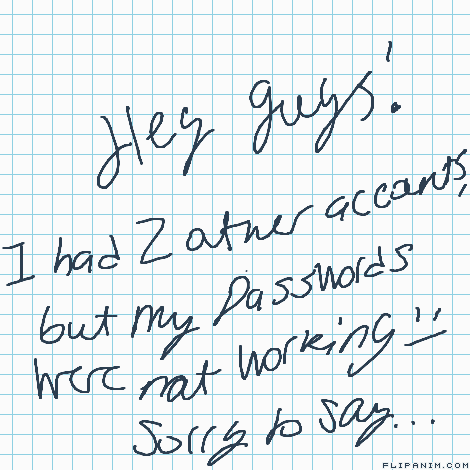 Hey guys!
I had 2 other accounts,
but my passwords
were not working :)
Sorry to say...
FLIPANIM.COM